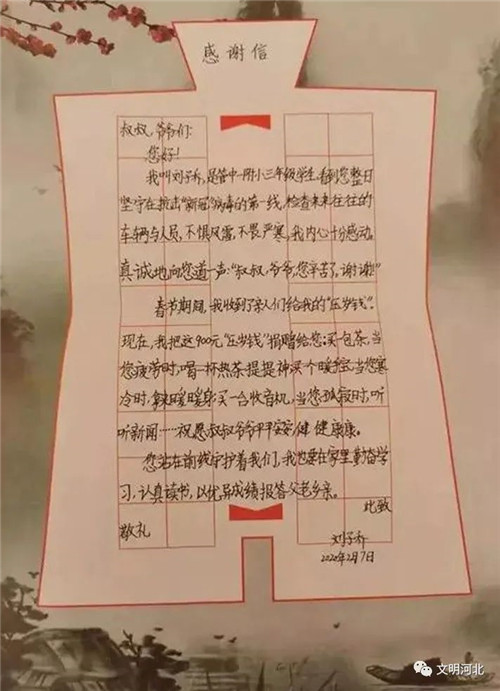 感谢信
叔叔,爷爷们:
您好!
我叫刘子乔,是管中一附小三年级学生,看到您整日
坚守在抗击“新冠”病毒的第一线,检查来来往往的
车辆与人员,不惧风雪,不畏严寒,我内心十分感动。
真诚地向您道一声:“叔叔,爷爷,您辛苦了,谢谢!”
春节期间,我收到了亲人们给我的“压岁钱”。
现在,我把这900元“压岁钱”捐赠给您:买包茶,当
您疲劳时,喝一杯热茶提提神买个暖宝,当您寒
冷时,暖暖身买一台收音机,当您孤寂时,听
听新闻……祝愿叔叔爷爷平平安安健健康康。
您站在前线守护着我们,我也要在家里勤奋学
习,认真读书,以优品成绩报答父老乡亲。
此致
敬礼
刘子乔
2020年2月7日
文明河北